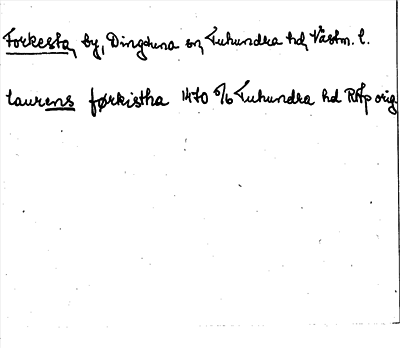 Forkesta, by, Dingtuna sn, Tuhundra hd, Västm. l.
laurens førkistha 1470 6/6 Tuhundra hd RAp orig